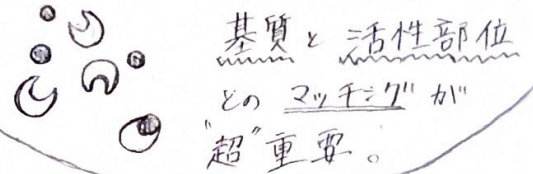 基質と活性部位
とのマッチングが
"超"重要。